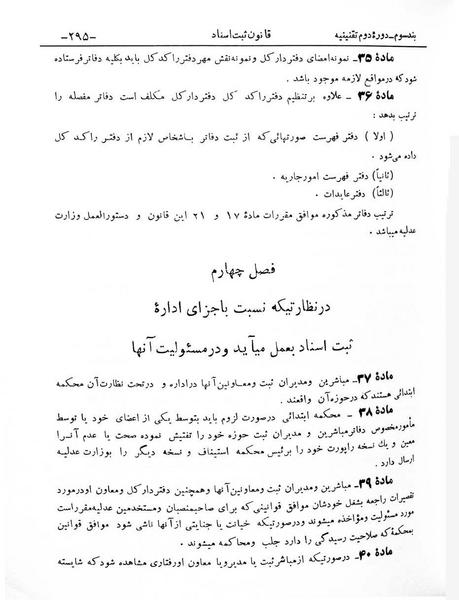 بند سوم ـ دورهٔ دوم تقنینیه قانون ثبت اسناد ـ۲۹۵ـ
مادهٔ ۳۵ـ نمونه امضای دفتردار کل و نمونه نقش مهر دفتر راکد کل باید بکلیه دفاتر فرستاده
شود که در مواقع لازمه موجود باشد .
مادهٔ ۳۶ ـ علاوه بر تنظیم دفتر راکد کل دفتردار کل مکلف است دفاتر مفصله را
ترتیب بدهد :
( اولا ) دفتر فهرست صورتهائی که از ثبت دفاتر باشخاص لازم از دفتر راکد کل
داده می‌شود .
(ثانیاً) دفتر فهرست امور جاریه .
(ثالثاً) دفتر عایدات .
ترتیب دفاتر مذکوره موافق مقررات مادهٔ ۱۷ و ۲۱ این قانون و دستورالعمل وزارت
عدلیه میباشد .
فصل چهارم
در نظارتیکه نسبت باجزای ادارهٔ
ثبت اسناد بعمل میآید و در مسئولیت آنها
مادهٔ ۳۷ـ مباشرین و مدیران ثبت و معاونین آنها در اداره و در تحت نظارت آن محکمه
ابتدائی هستند که در حوزه آن واقعند .
مادهٔ ۳۸ ـ محکمه ابتدائی در صورت لزوم باید بتوسط یکی از اعضای خود یا توسط
مأمور مخصوص دفاتر مباشرین و مدیران ثبت حوزه خود را تفتیش نموده صحت یا عدم آنرا
معین و یك نسخه راپورت خود را برئیس محکمه استیناف و نسخه دیگر را بوزارت عدلیه
ارسال دارد .
مادهٔ ۳۹ـ مباشرین و مدیران ثبت و معاونین آنها و همچنین دفتردار کل و معاون او در مورد
تقصیرات راجعه بشغل خودشان موافق قوانینی که برای صاحبمنصبان و مستخدمین عدلیه مقرر است
مورد مسئولیت و مؤاخذه میشوند و در صورتیکه خیانت یا جنایتی از آنها ناشی شود موافق قوانین
بمحکمه که صلاحیت رسیدگی را دارد جلب و محاکمه میشوند .
مادهٔ ۴۰ـ در صورتیکه از مباشر ثبت یا مدیر و یا معاون او رفتاری مشاهده شود که شایسته